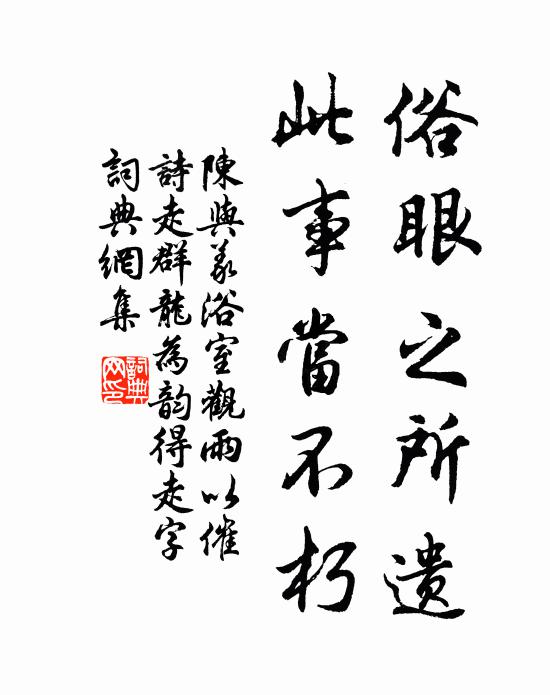 俗眼之所遗
此事當不朽
陳與義浴室觀雨以催
詩走群龍為韵得走字
詞典網集
詞典
网印